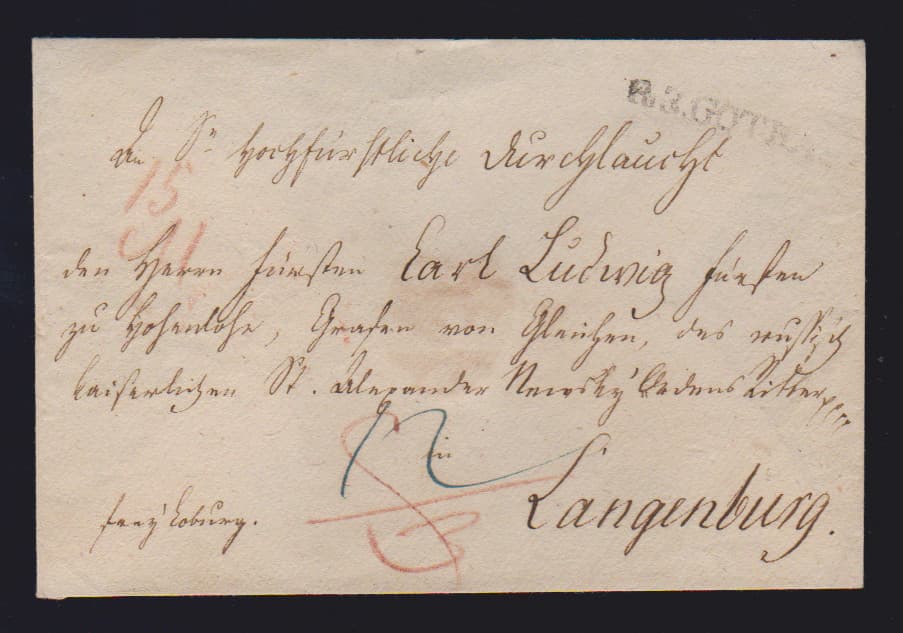 R.3.GOTHA
An Sr Hochfürstliche Durchlaucht
15
den Herrn Fürsten Carl Ludwig Fürsten
zu Hohenlohe, Grafen von Gleichen, des russisch
kaiserlichen St. Alexander Newsky Ordens Ritter
in
Langenburg.
Coburg.